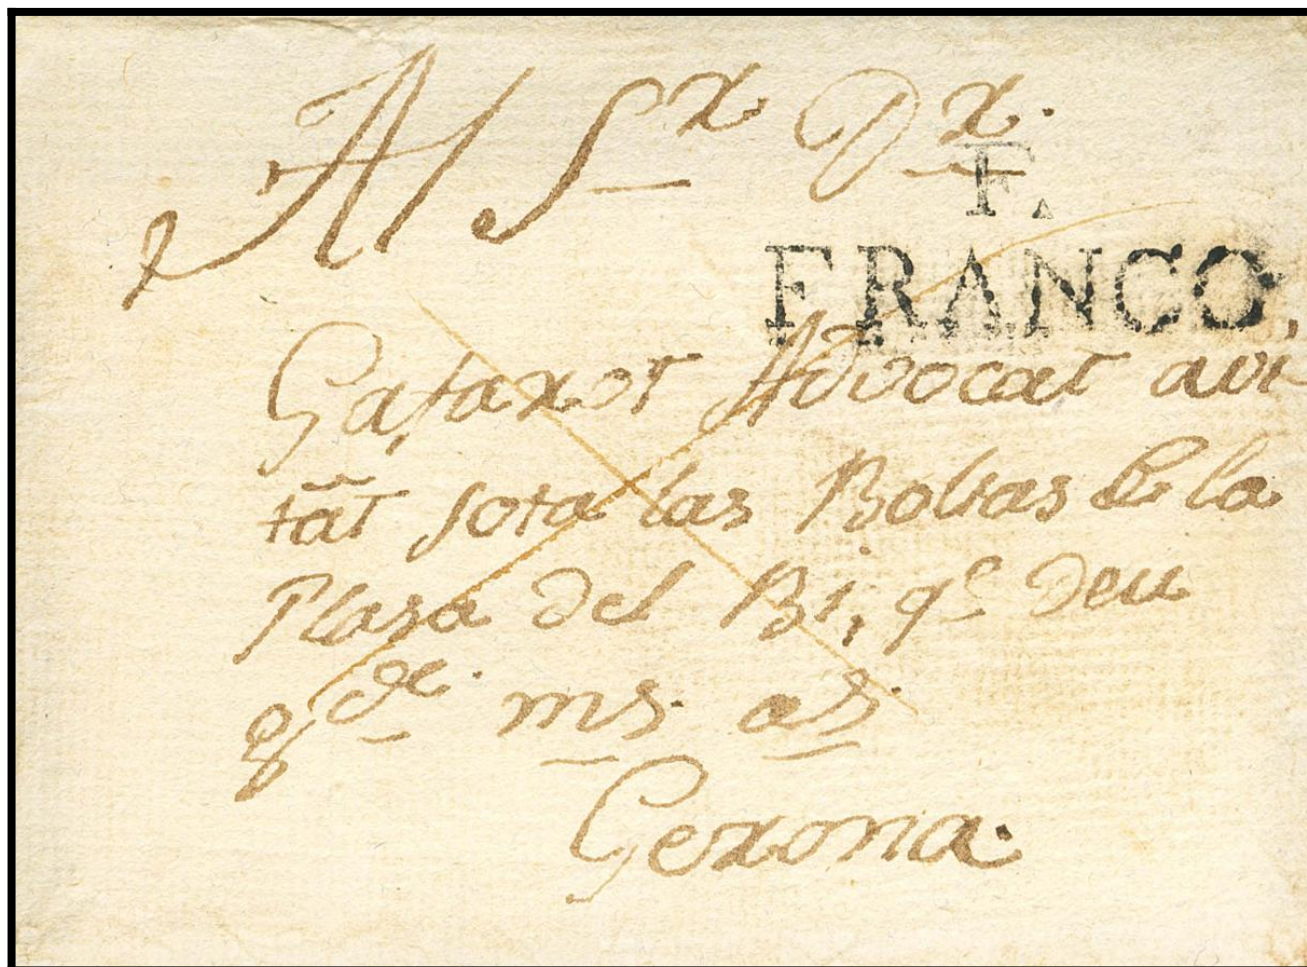 Al Sr Dr.
F.
FRANCO
Gafarot Advocat avi
tat sota las Bolsas de la
Plasa del Bi, qe Deu
gde ms as
Gerona.